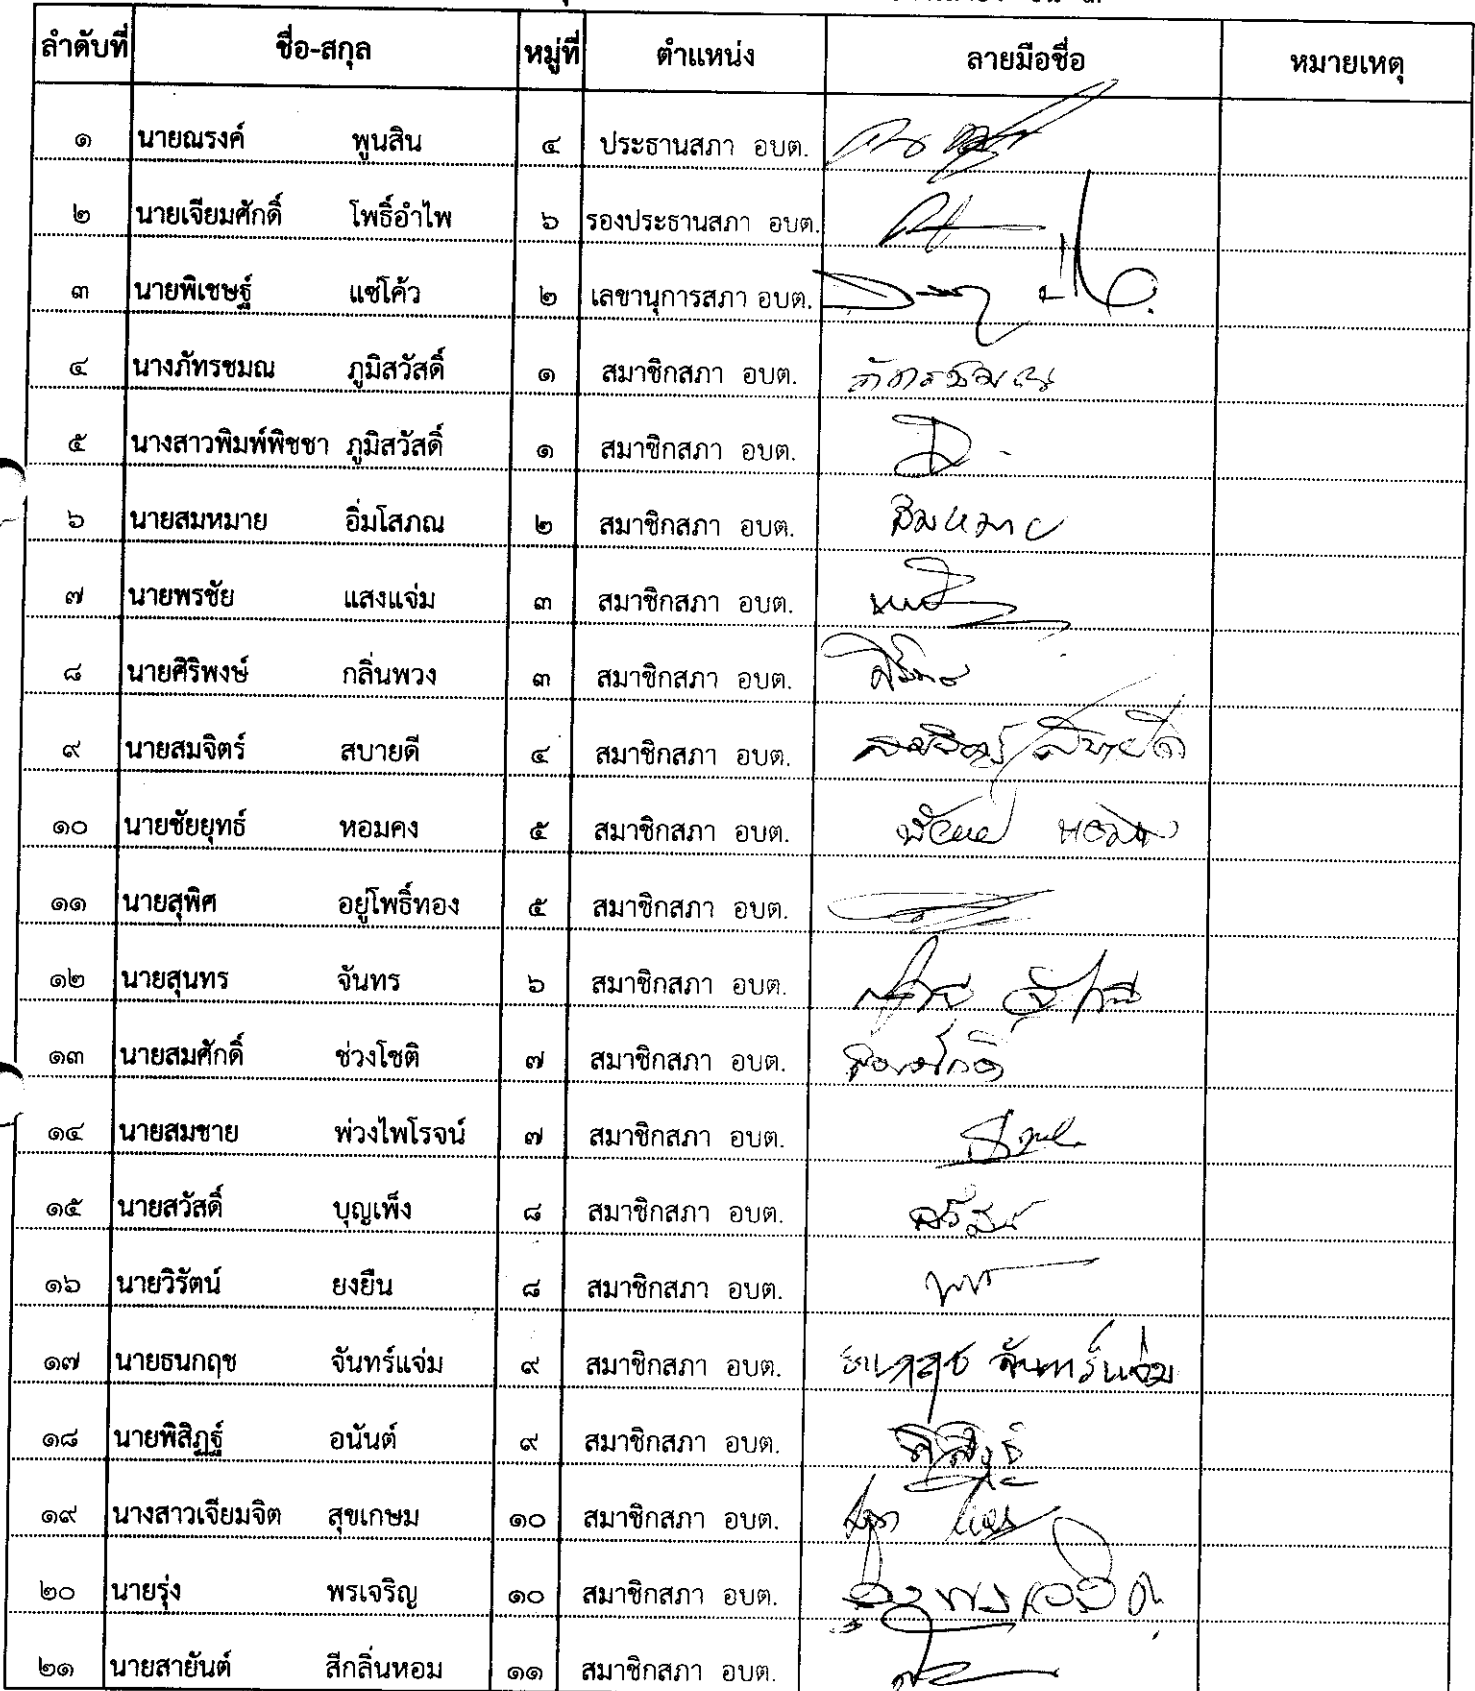 ลำดับที่ ชื่อ-สกุล หมู่ที่ ตำแหน่ง ลายมือชื่อ หมายเหตุ
๑ นายณรงค์ พูนสิน ๔ ประธานสภา อบต.
๒ นายเจียมศักดิ์ โพธิ์อำไพ ๖ รองประธานสภา อบต.
๓ นายพิเชษฐ์ แซ่โค้ว ๒ เลขานุการสภา อบต.
๔ นางภัทรชมณ ภูมิสวัสดิ์ ๑ สมาชิกสภา อบต. ภัทรชมณ
๕ นางสาวพิมพ์พิชชา ภูมิสวัสดิ์ ๑ สมาชิกสภา อบต.
๖ นายสมหมาย อิ่มโสภณ ๒ สมาชิกสภา อบต. สมหมาย
๗ นายพรชัย แสงแจ่ม ๓ สมาชิกสภา อบต.
๘ นายศิริพงษ์ กลิ่นพวง ๓ สมาชิกสภา อบต.
๙ นายสมจิตร์ สบายดี ๔ สมาชิกสภา อบต. สมจิตร์ สบายดี
๑๐ นายชัยยุทธ์ หอมคง ๕ สมาชิกสภา อบต.
๑๑ นายสุพิศ อยู่โพธิ์ทอง ๕ สมาชิกสภา อบต.
๑๒ นายสุนทร จันทร ๖ สมาชิกสภา อบต.
๑๓ นายสมศักดิ์ ช่วงโชติ ๗ สมาชิกสภา อบต. สมศักดิ์
๑๔ นายสมชาย พ่วงไพโรจน์ ๗ สมาชิกสภา อบต.
๑๕ นายสวัสดิ์ บุญเพ็ง ๘ สมาชิกสภา อบต.
๑๖ นายวิรัตน์ ยงยืน ๘ สมาชิกสภา อบต.
๑๗ นายธนกฤช จันทร์แจ่ม ๙ สมาชิกสภา อบต. ธนกฤช จันทร์แจ่ม
๑๘ นายพิสิฏฐ์ อนันต์ ๙ สมาชิกสภา อบต.
๑๙ นางสาวเจียมจิต สุขเกษม ๑๐ สมาชิกสภา อบต.
๒๐ นายรุ่ง พรเจริญ ๑๐ สมาชิกสภา อบต.
๒๑ นายสายันต์ สีกลิ่นหอม ๑๑ สมาชิกสภา อบต.